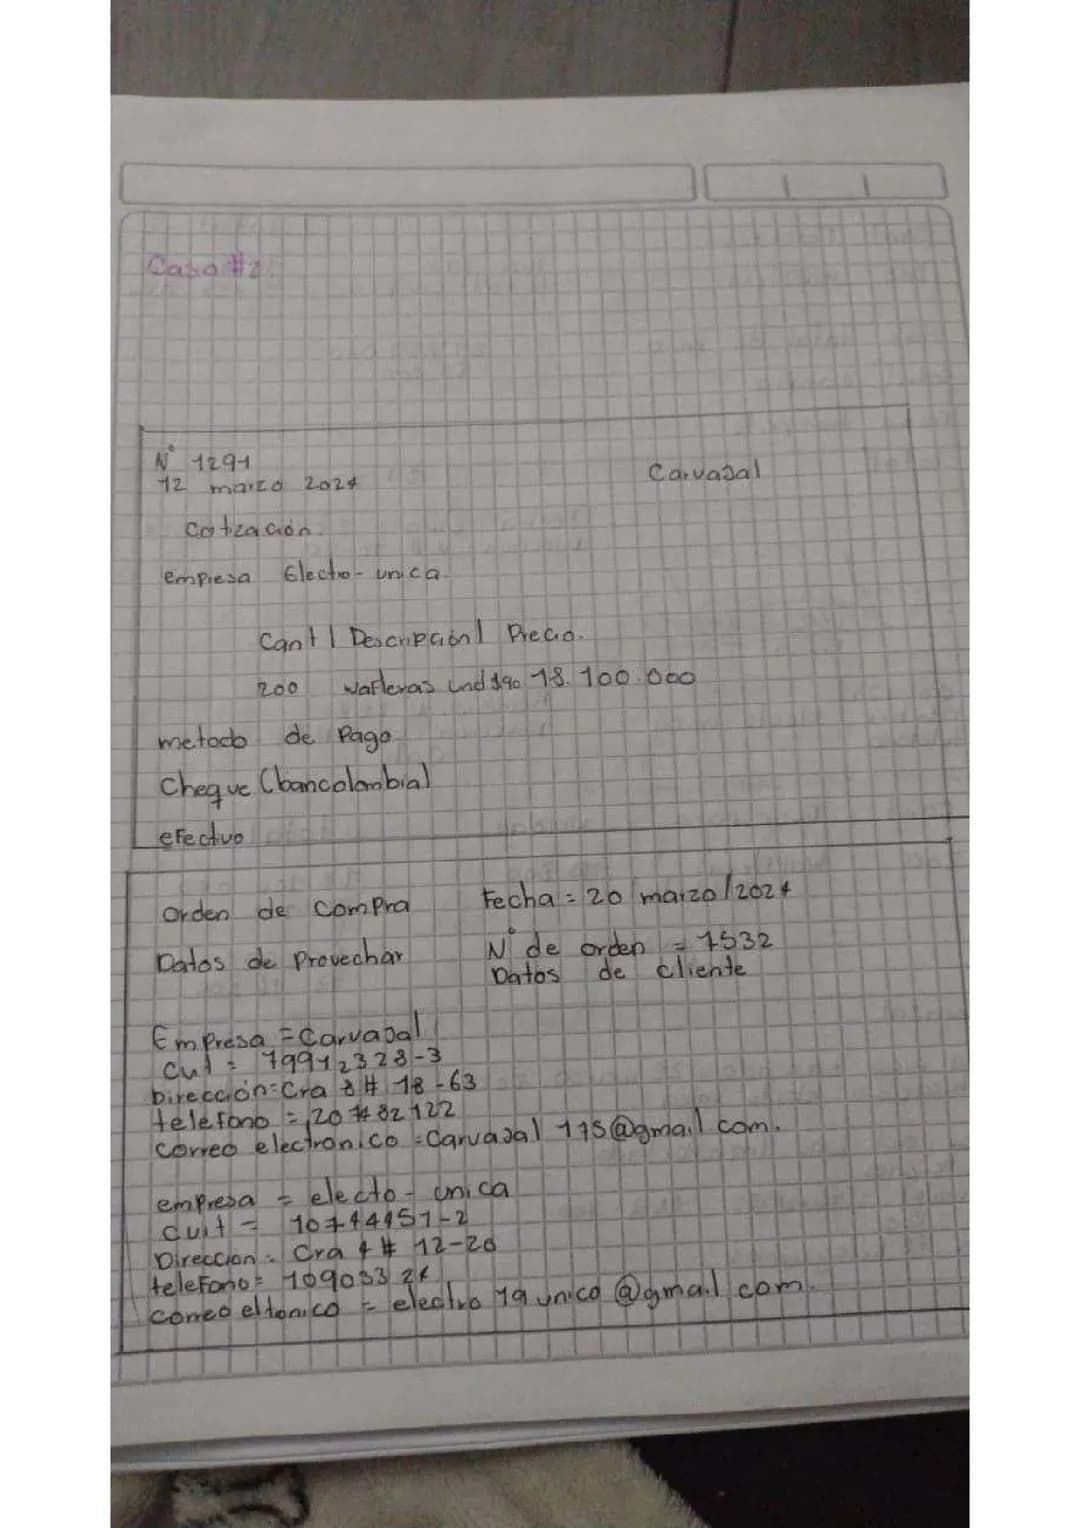 Caso #2.
N° 1291
Carvajal
12 marzo 2024
Cotización.
empresa Electro-unica.
Cant | Descripción | Precio.
200 Wafleras und $90 18.100.000
metodo de Pago
Cheque (bancolombia)
efectivo
Orden de Compra
Fecha = 20 marzo/2024
Datos de Provechar
N° de orden = 1532
Datos de cliente
Empresa = Carvajal
Cut = 79912323-3
Dirección = Cra 8 # 18-63
telefono = 207482122
Correo electronico = Carvajal 115@gmail.com.
empresa = electo-unica
cuit = 10744451-2
Direccion = Cra 4 # 12-20
telefono = 109033 24
correo eltonico = electro 19 unico @gmail.com.